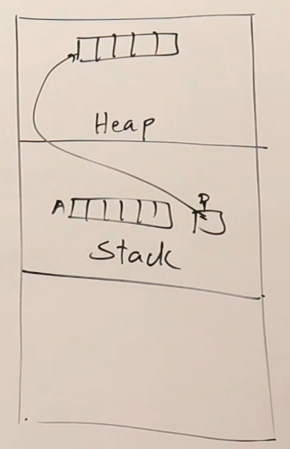 Heap
A P
Stack